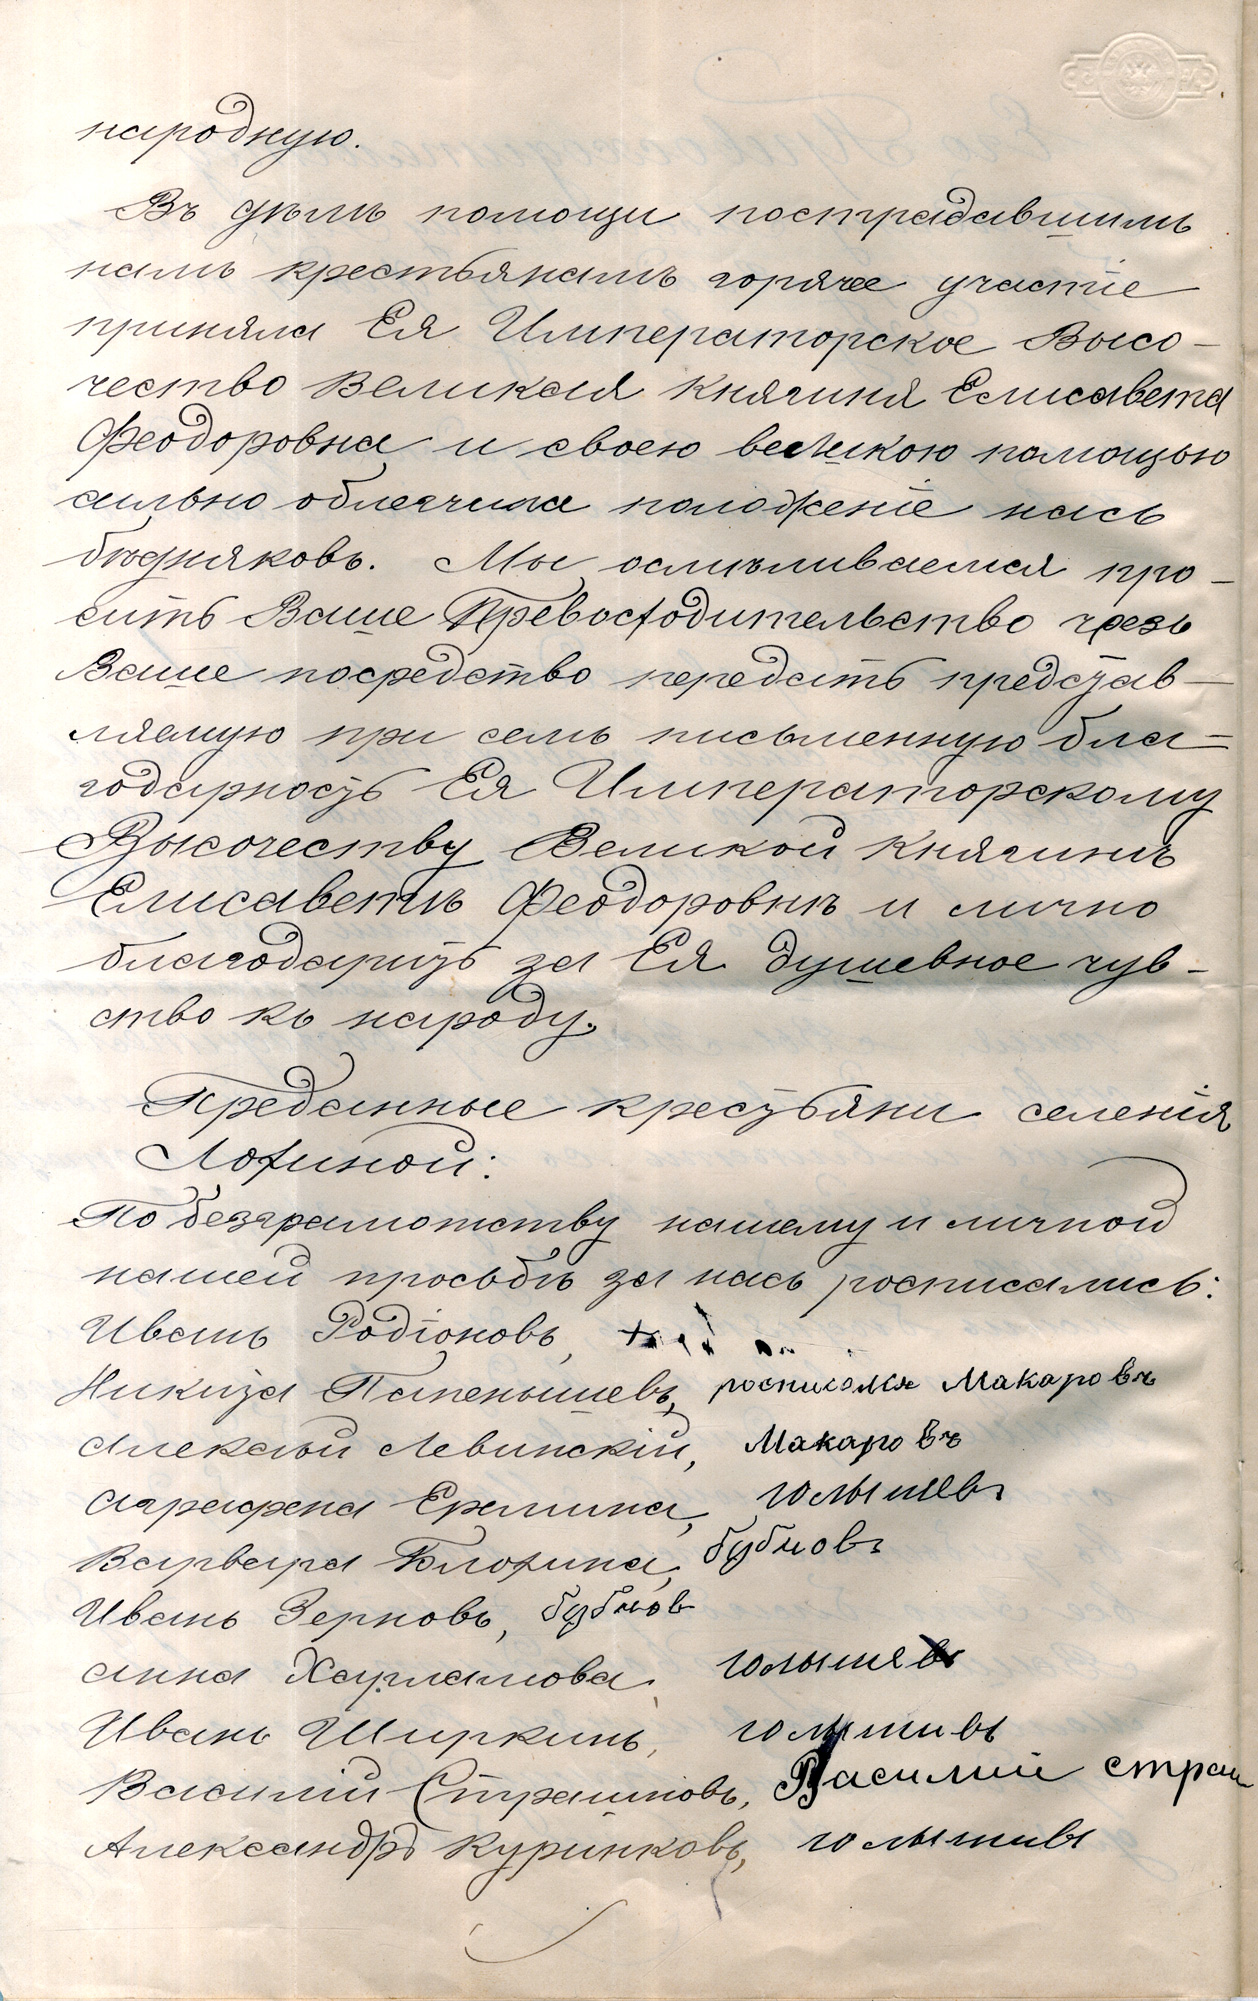 народную.
Въ дѣлѣ помощи пострадавшимъ
намъ крестьянамъ горячее участіе
приняла Ея Императорское Высо-
чество Великая Княгиня Елисавета
Феодоровна и своею великою помощью
сильно облегчила положеніе насъ
бѣдняковъ. Мы осмѣливаемся про-
сить Ваше Превосходительство чрезъ
Ваше посредство передать представ-
ляемую при семъ письменную бла-
годарность Ея Императорскому
Высочеству Великой Княгинѣ
Елисаветѣ Феодоровнѣ и лично
благодарить за Ея душевное чув-
ство къ народу.
Преданные крестьяни селенія
Лохиной:
По безграмотству нашему и личной
нашей просьбѣ за насъ росписались:
Иванъ Родіоновъ,
Никита Папенышевъ, росписался Макаровъ
Алексѣй Левинскій, Макаровъ
Аграфена Еремина, голышевъ
Варвара Блохина, бубновъ
Иванъ Зерновъ, бубнов
Анна Харламова, голышевъ
Иванъ Ширкинъ, голышивъ
Василій Страшновъ, Василий страш
Александръ Куринковъ, голышивъ